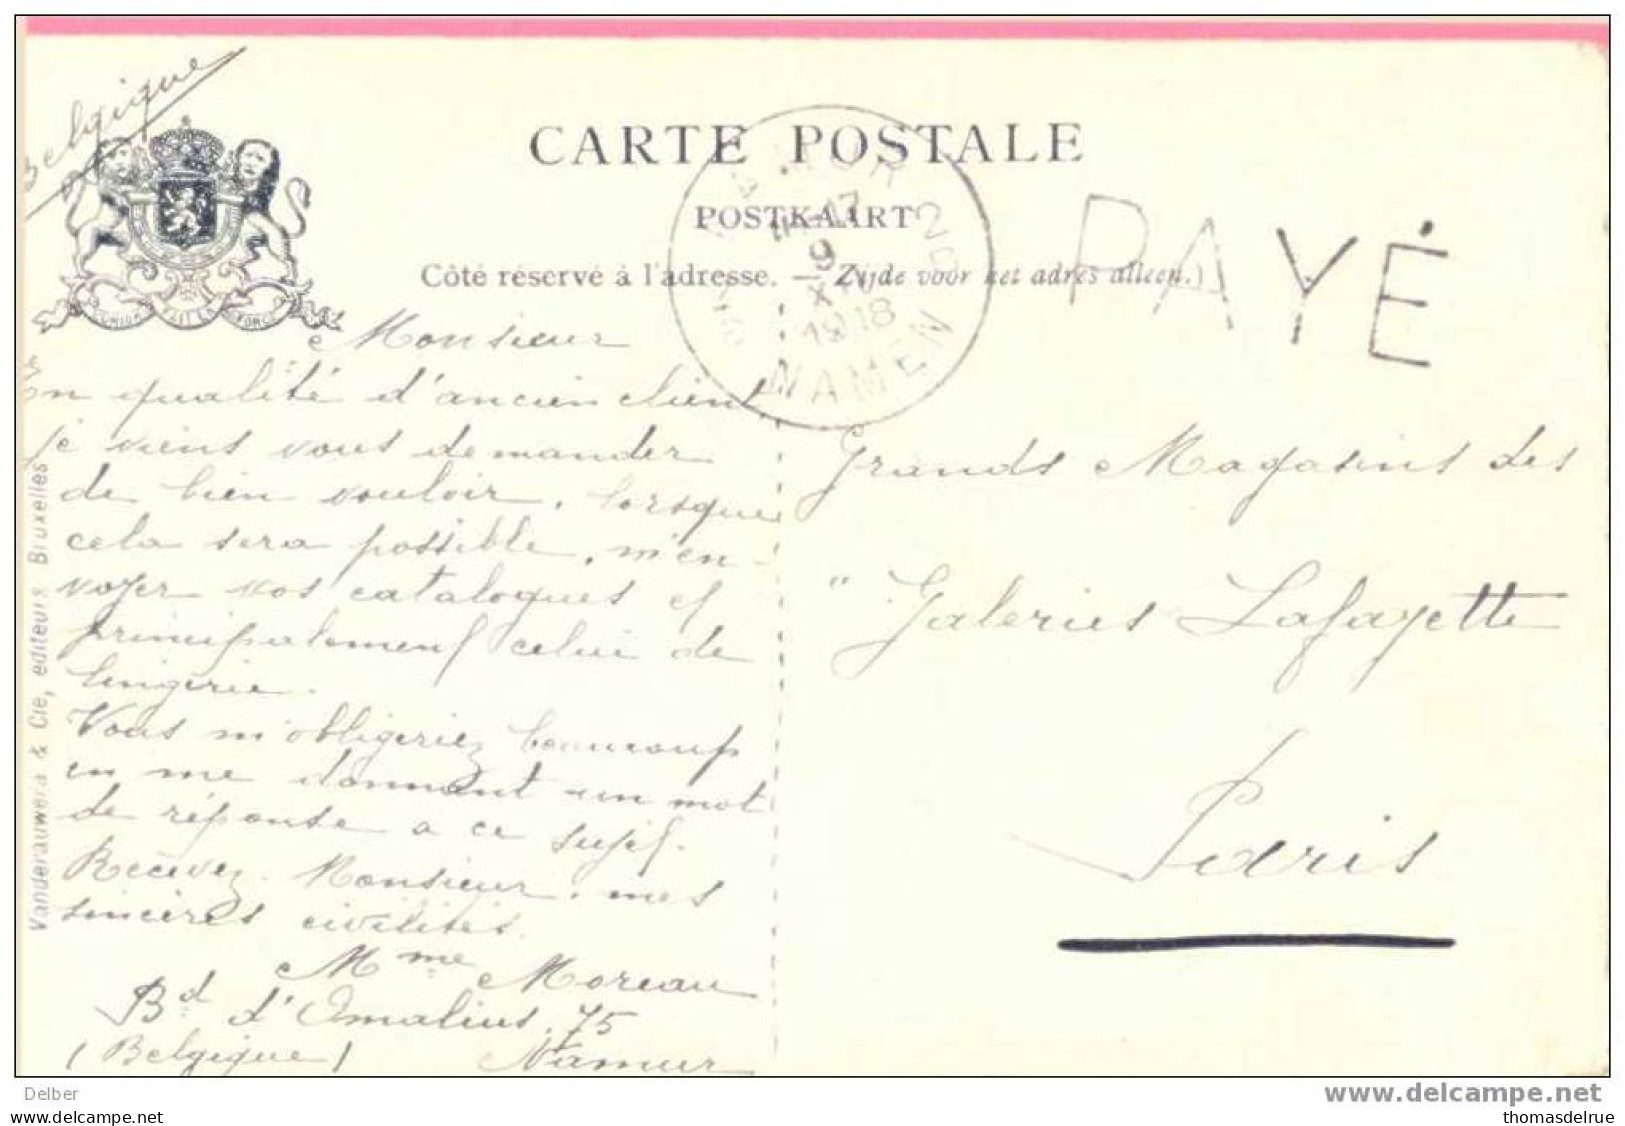 Belgique
CARTE POSTALE
POSTKAART
Côté réservé à l'adresse. — Zijde voor het adres alleen.)
L'UNION FAIT LA FORCE
NAMUR
9
XII
1918
NAMEN
PAYÉ
Monsieur
En qualité d'ancien client,
je viens vous demander
de bien vouloir, lorsque
cela sera possible, m'en-
voyer vos catalogues et
principalement celui de
lingerie.
Vous m'obligeriez beaucoup
en me donnant un mot
de réponse à ce sujet.
Recevez Monsieur, mes
sincères civilités.
Mme Moreau
Bd d'Omalius, 75
(Belgique) Namur
Grands Magasins des
"Galeries Lafayette
Paris
Vanderauwera & Cie, éditeurs Bruxelles
Delber
www.delcampe.net
©www.delcampe.net
thomasdelrue